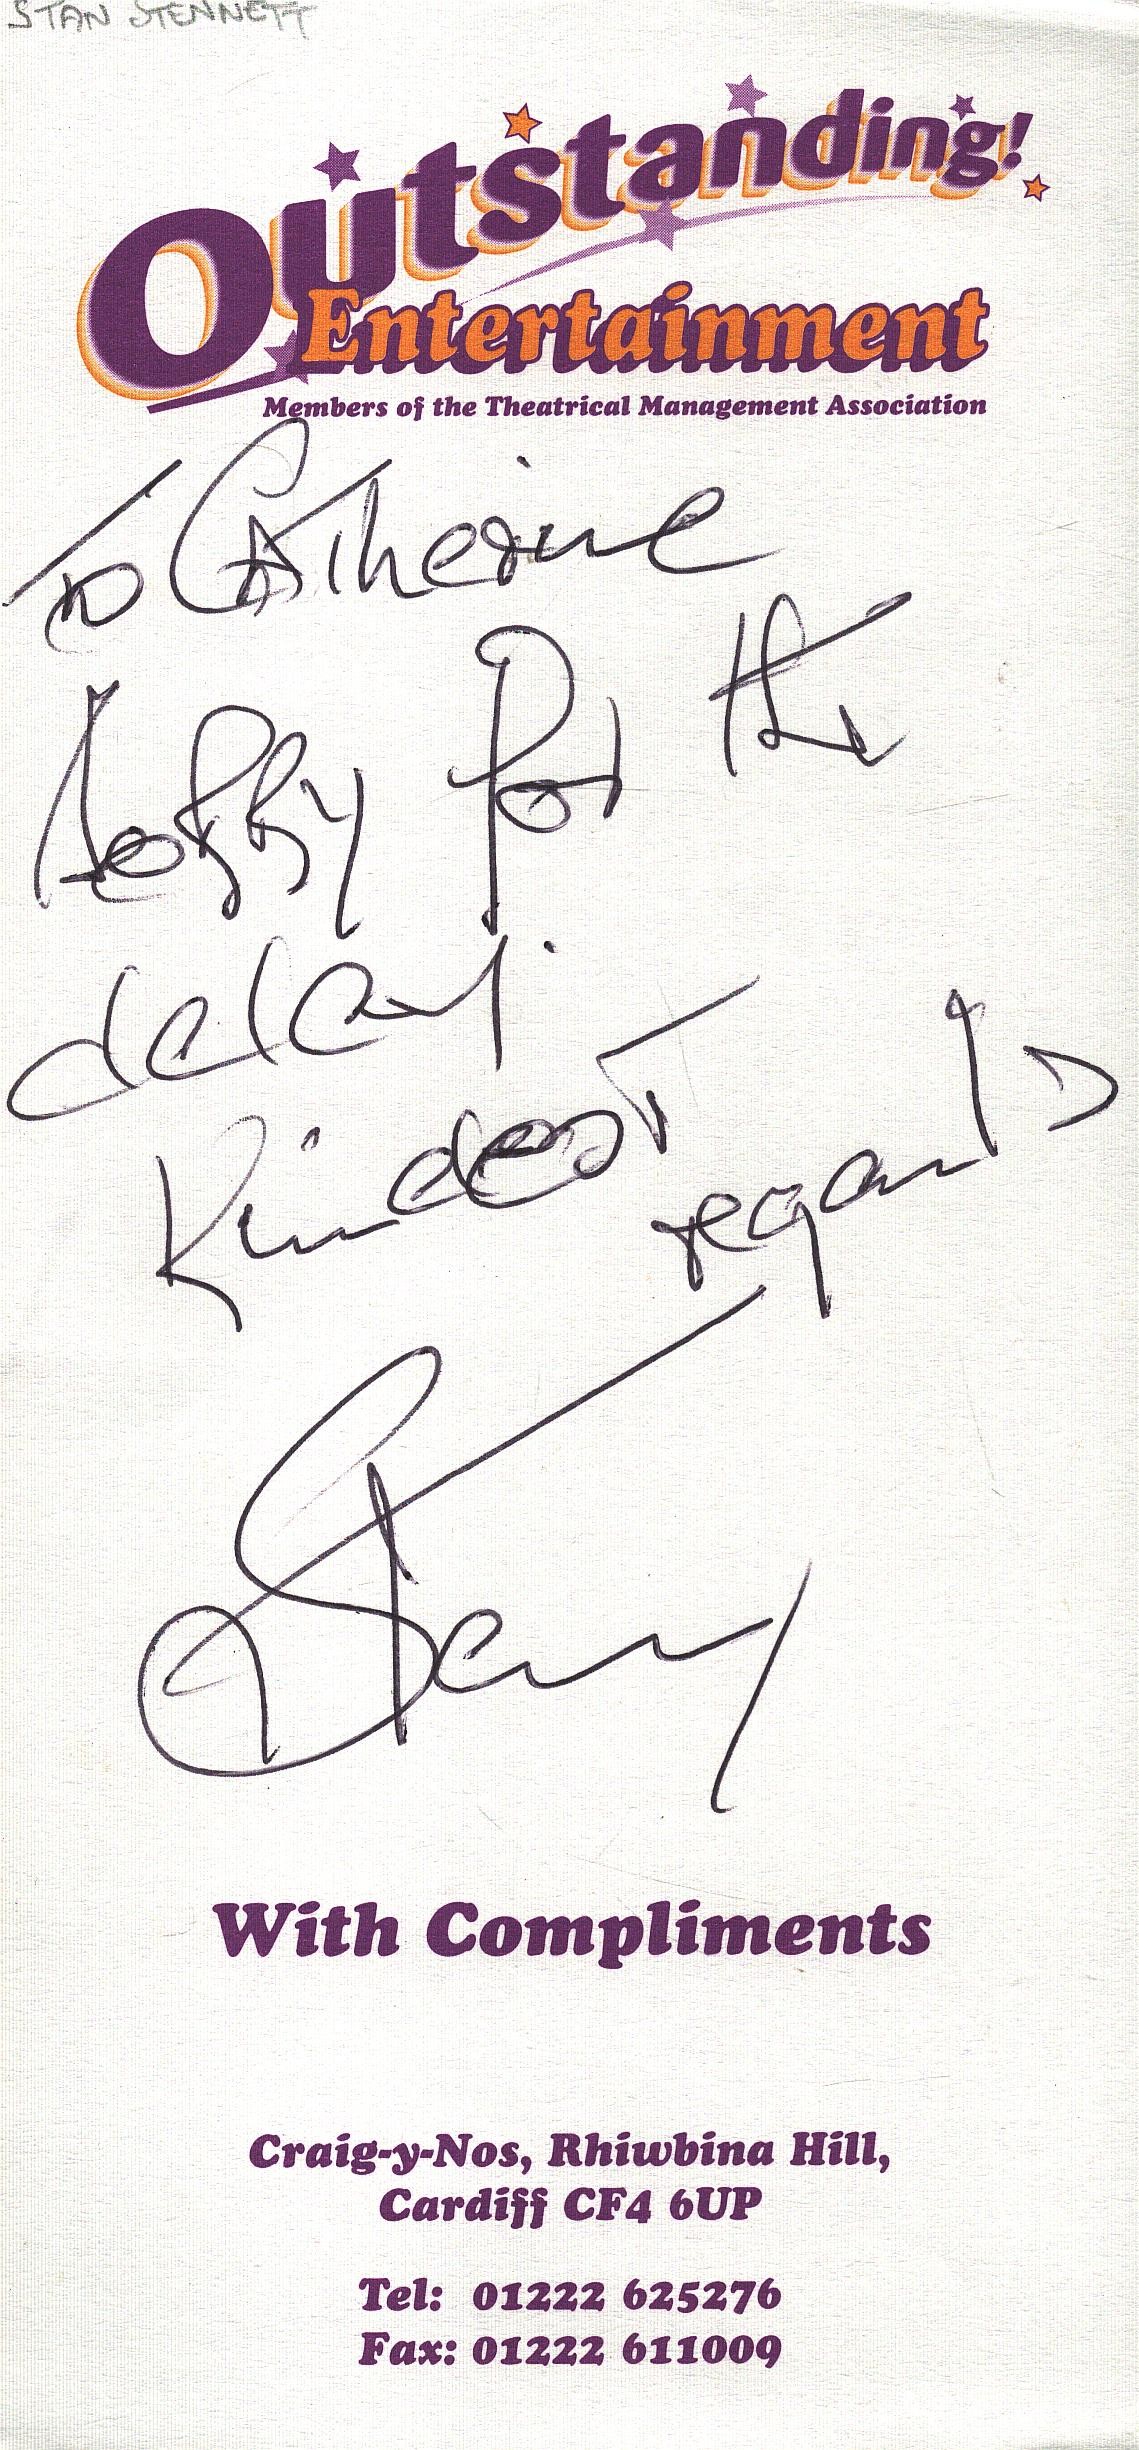 STAN STENNETT
Outstanding!
Entertainment
Members of the Theatrical Management Association
To Catherine
Sorry for the
delay.
Kindest
regards
Stan
With Compliments
Craig-y-Nos, Rhiwbina Hill,
Cardiff CF4 6UP
Tel: 01222 625276
Fax: 01222 611009